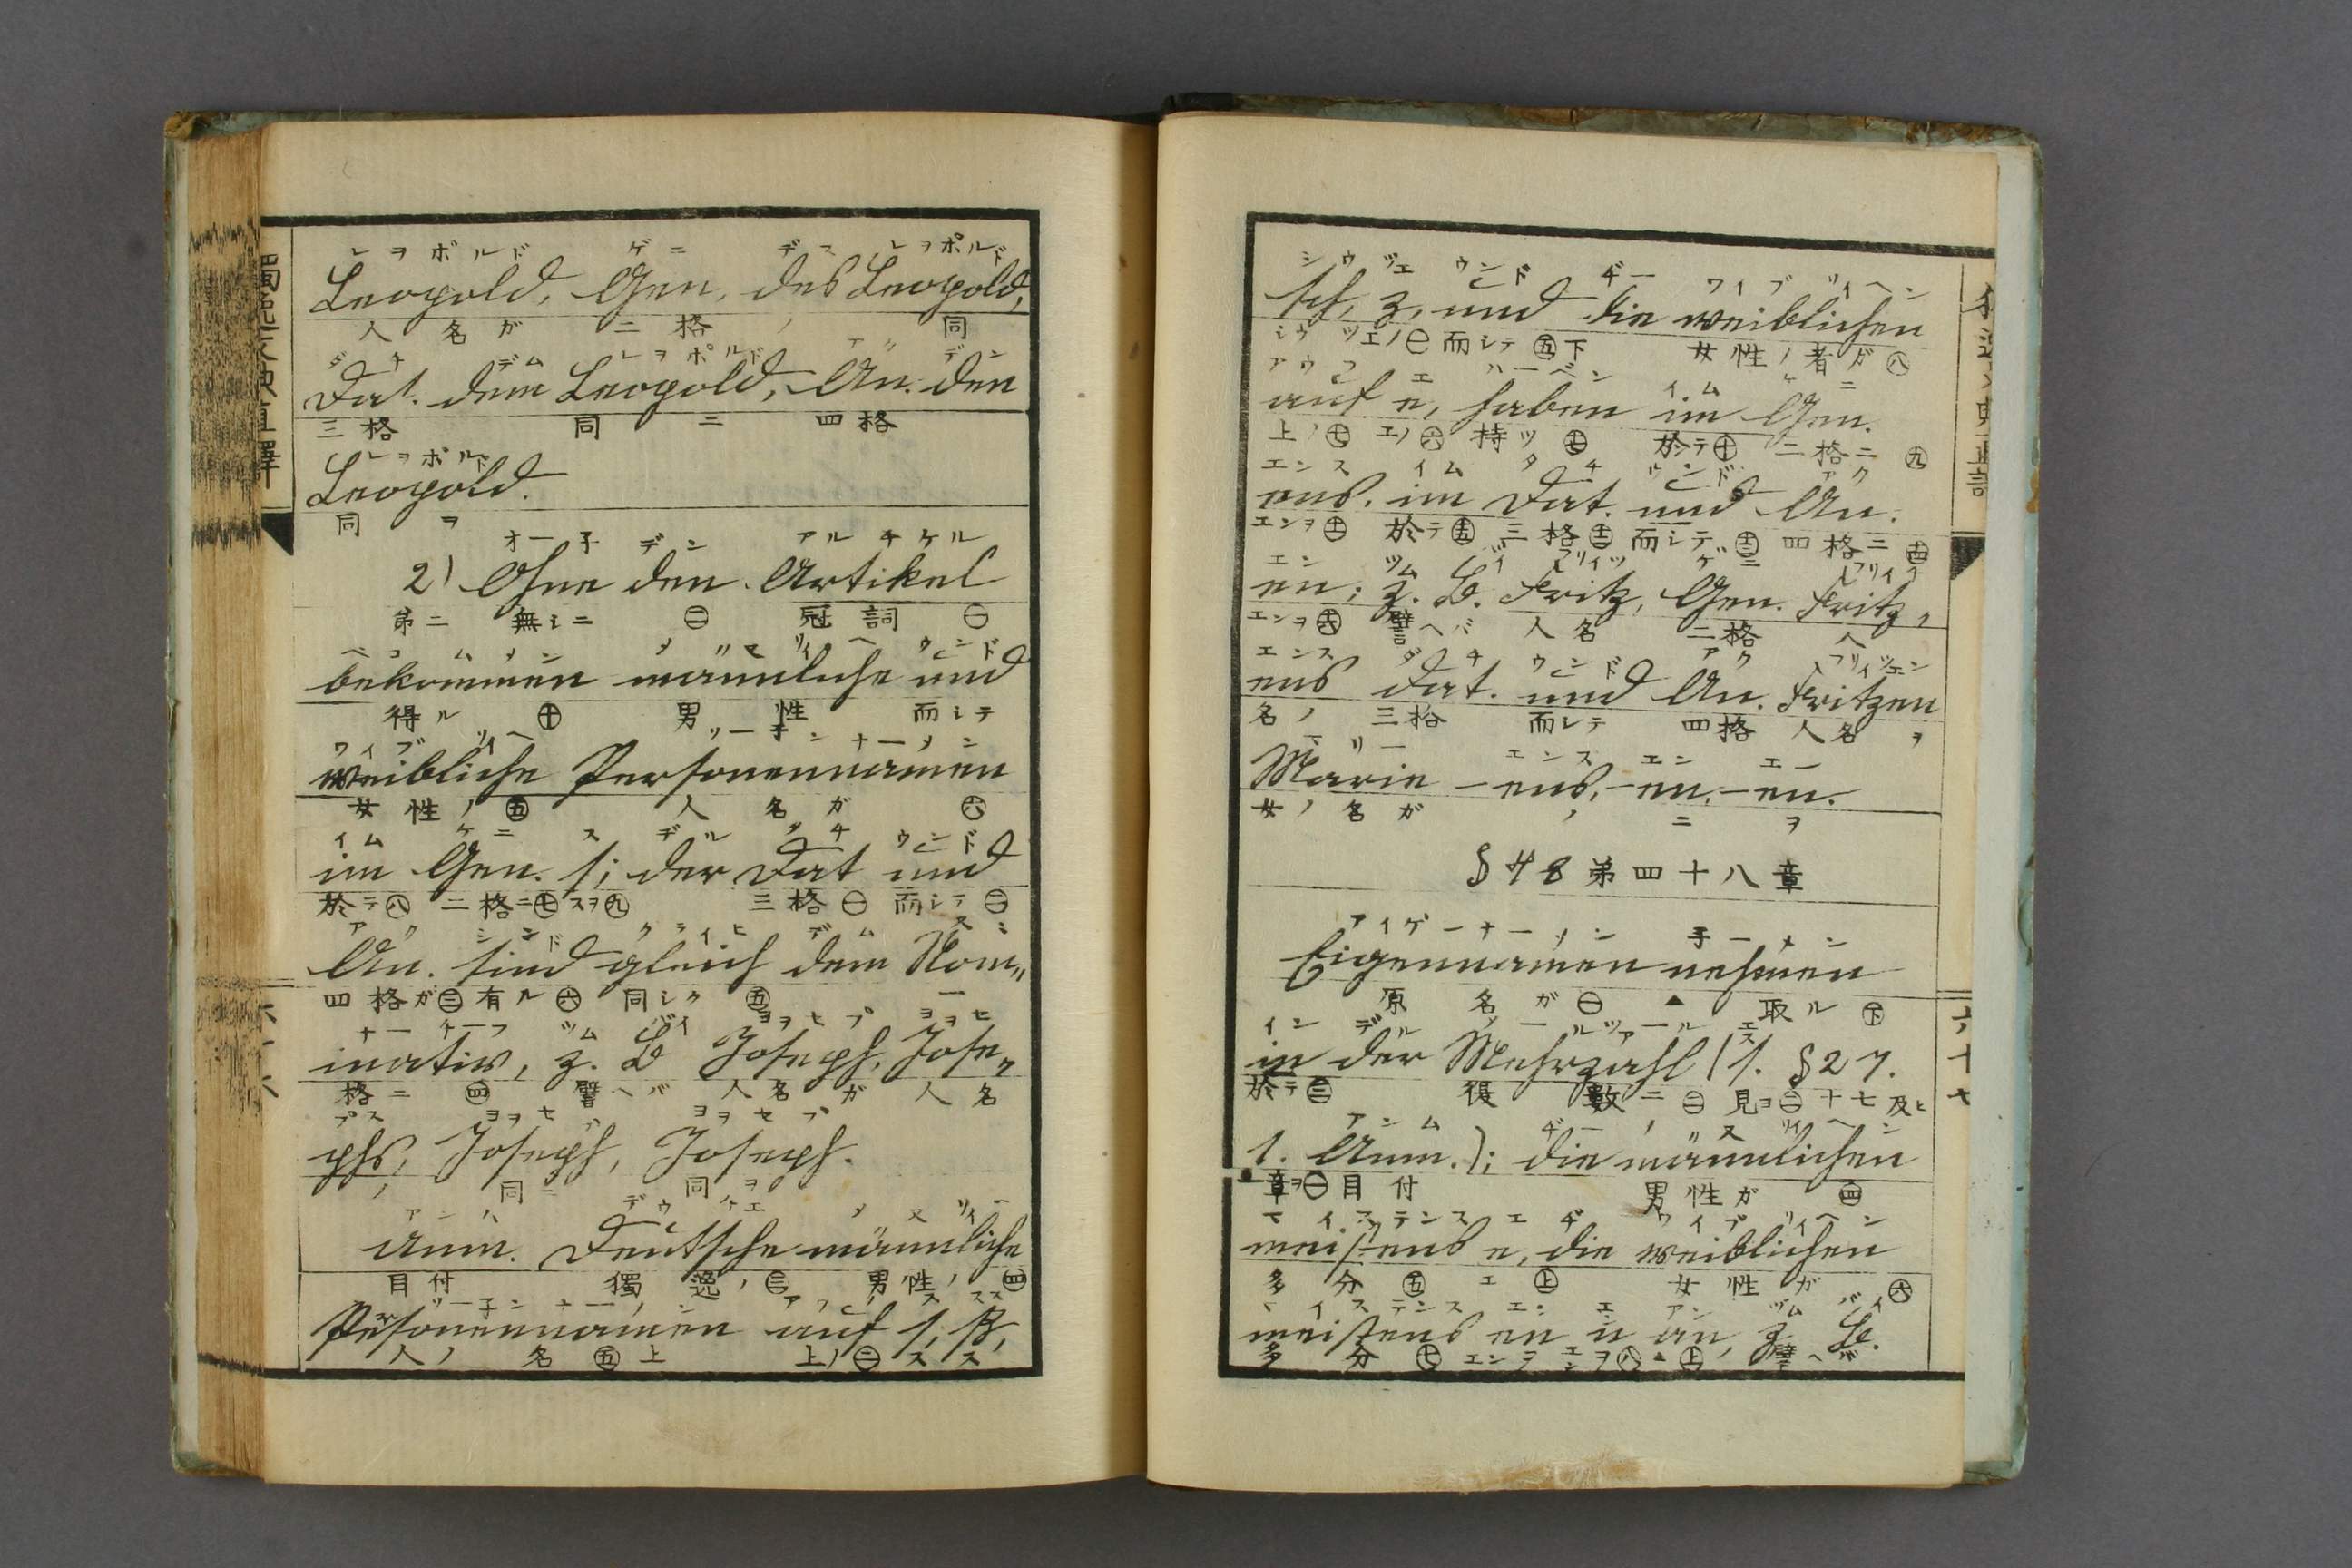 レヲポルド ゲニ デス レヲポルド
Leopold, Gen. des Leopold,
人名ガ 二格 ノ 同
ダチ デム レヲポルド アク デン
Dat. dem Leopold, Ac. den
三格 同 ニ 四格
レヲポルド
Leopold.
同 ヲ
オー子 デン アルチケル
2) Ohne den Artikel
第二 無シニ ㊁ 冠詞 ㊀
ベコムメン メンリイヘ ウンド
bekommen männliche und
得ル ㊉ 男性 而シテ
ワイブリイヘ ソー子ンナーメン
weibliche Personennamen
女性ノ ㊄ 人名ガ ㊅
イム ゲニ ス デル ダチ ウンド
im Gen. s; der Dat und
於テ㊇ 二格ニ㊆ スヲ㊈ 三格㊀ 而シテ㊁
アク シンド グライヒ デム
Ac. sind gleich dem Nom„
四格ガ㊂ 有ル㊅ 同シク ㊄ 一
ナーチーフ ツム バイ ヨヲセプ ヨヲセ
inativ, z. B Joseph, Jose„
格ニ ㊃ 譬ヘバ 人名ガ 人名
プス ヨヲセプ ヨヲセプ
phs, Joseph, Joseph.
ノ 同ニ 同ヲ
Anm. Deutsche männliche
目付 獨逸ノ㊂ 男性ノ ㊃
ソー子ンナーメン アウフ ス スス
Personennamen auf s, ß,
人ノ 名㊄上 上ノ㊁ ス ス
シウ ツエ ウンド ヂー ワイブリイヘン
sch, z, und die weiblichen
シウ ツエノ㊀ 而シテ ㊄下 女性ノ者ガ㊇
アウフ エ ハーベン イム ゲニ
auf e, haben im Gen.
上ノ㊆ エノ㊅ 持ツ 於テ㊉ 二格ニ ㊈
エンス イム ダチ ウンド アク
ens, im Dat. und Ac.
エンヲ 於テ 三格 而シテ 四格ニ
エン ツム バイ フリイツ ゲニ フリイツ
en; z. B. Fritz, Gen. Fritz„
エンヲ 譬ヘバ 人名 二格 人
エンス ダチ ウンド アク フリイツエン
ens Dat. und Ac. Fritzen
名ノ 三格 而シテ 四格 人名ヲ
マリー エンス エン エン
Marie -ens, -en, -en.
女ノ名ガ ノ ニ ヲ
§48 第四十八章
アイゲーナーメン 子ーメン
Eigennamen nehmen
原名ガ㊀ ▲ 取ル ㊦
イン デル メールツアール エス
in der Mehrzahl (s. §27.
於テ㊂ 複數ニ㊁ 見ヨ㊁ 十七及ヒ
アンム ヂー メンリイヘン
1. Anm.); die männlichen
章ヲ㊀目付 男性ガ ㊃
マイステンス エ ヂ ワイブリイヘン
meistens e, die weiblichen
多分㊄ エ ㊤ 女性ガ ㊅
マイステンス エン エン アン ツム バイ
meistens en n an, z. B.
多分㊆ エンヲ エンヲ㊇ ▲㊤ 譬ヘバ
六十七